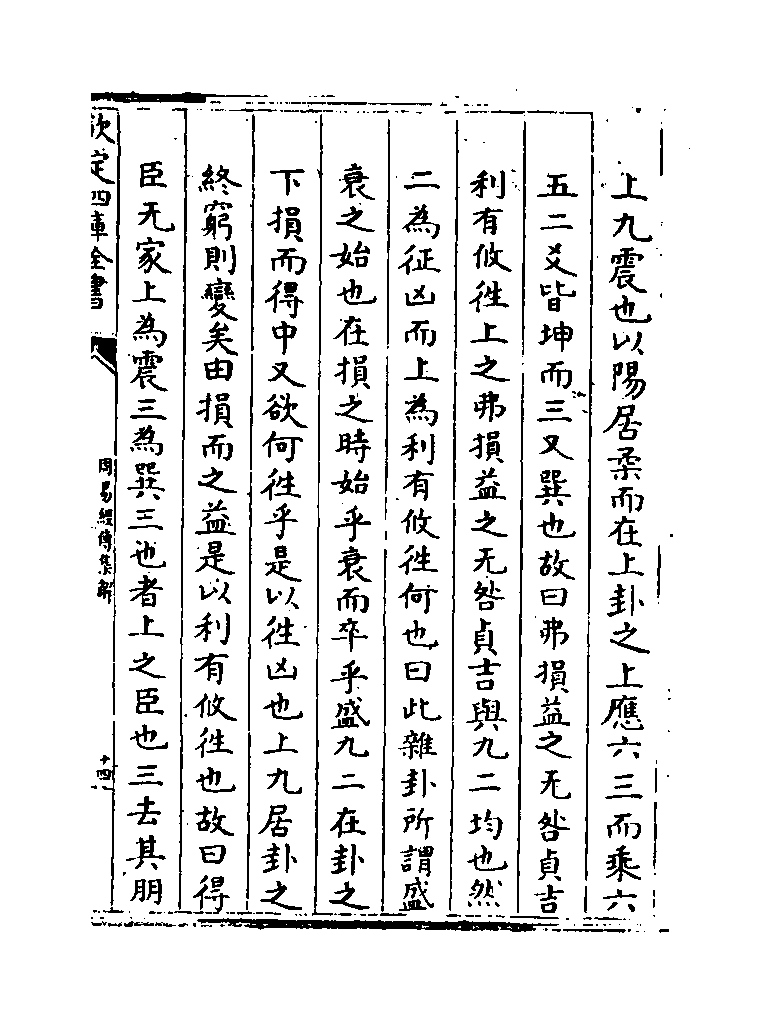 上九震也以陽居柔而在上卦之上應六三而乘六
五二爻皆坤而三又巽也故曰弗損益之无咎貞吉
利有攸徃上之弗損益之无咎貞吉與九二均也然
二為征凶而上為利有攸徃何也曰此雜卦所謂盛
衰之始也在損之時始乎衰而卒乎盛九二在卦之
下損而得中又欲何徃乎是以徃凶也上九居卦之
終窮則變矣由損而之益是以利有攸徃也故曰得
臣无家上為震三為巽三也者上之臣也三去其朋
欽定四庫全書
周易經傳集解
十四